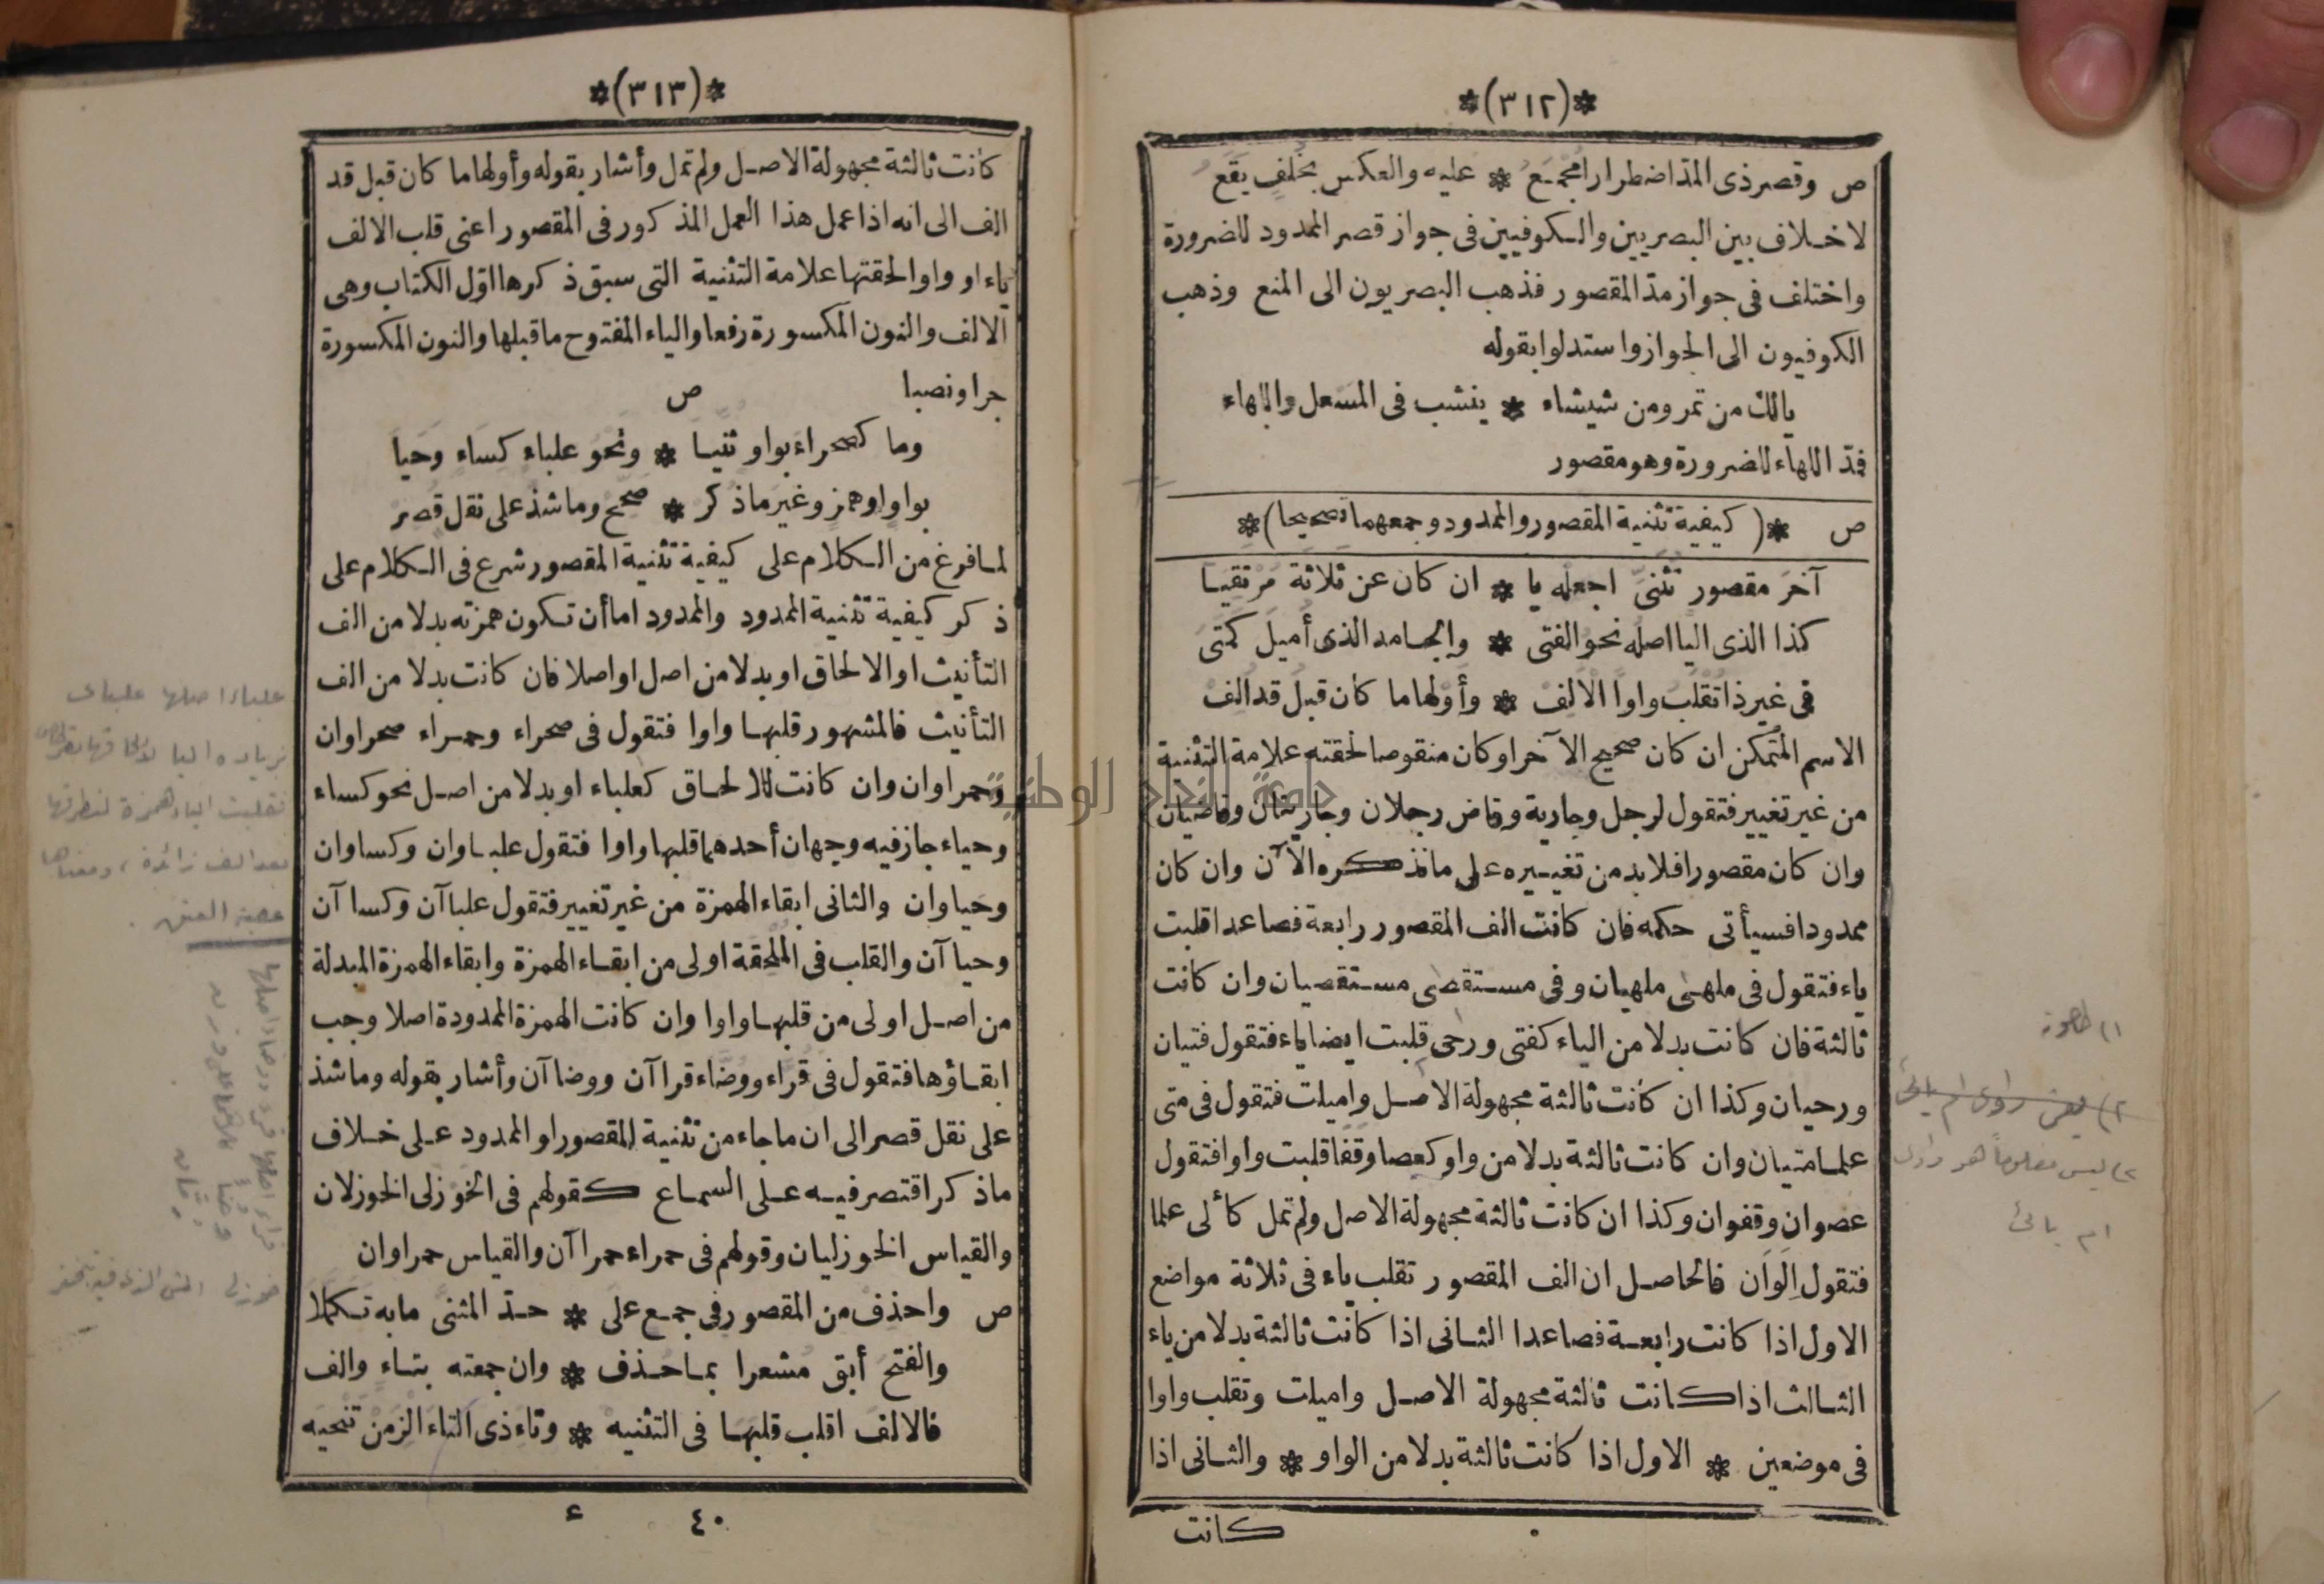 *(٣١٢)*
ص وقصر ذى المدّ اضطرارا مُجْمَعُ * عليه والعكس بخُلْفٍ يَقَعُ
لا خلاف بين البصريين والكوفيين فى جواز قصر الممدود للضرورة
واختلف فى جواز مدّ المقصور فذهب البصريون الى المنع وذهب
الكوفيون الى الجواز واستدلوا بقوله
يالك من تمر ومن شيشاء * ينشب فى المسعل واللهاء
فمدّ اللهاء للضرورة وهو مقصور
ص *(كيفية تثنية المقصور والممدود وجمعهما تصحيحا)*
آخرَ مقصور تُثَنِّى اجعله يا * ان كان عن ثلاثة مُرْتقيا
كذا الذى اليا اصله نحو الفتى * والجامد الذى أُميلَ كمَتَى
فى غيرذا تُقْلَبُ واوًا الْالِفْ * وأَوْلها ما كان قبلُ قد اُلِفْ
الاسم المتمكن ان كان صحيح الآخر او كان منقوصا لحقته علامة التثنية
من غير تغيير فتقول لرجل وجارية وقاض رجلان وجاريتان وقاضيان
وان كان مقصورا فلا بد من تغييره على ما نذكره الآن وان كان
ممدودا فسيأتى حكمه فان كانت الف المقصور رابعة فصاعدا قلبت
ياء فتقول فى ملهى ملهيان وفى مستقصى مستقصيان وان كانت
ثالثة فان كانت بدلا من الياء كفتى ورحى قلبت ايضا ياء فتقول فتيان
ورحيان وكذا ان كانت ثالثة مجهولة الاصل واميلت فتقول فى متى
علما متيان وان كانت ثالثة بدلا من واو كعصا وقفا قلبت واوا فتقول
عصوان وقفوان وكذا ان كانت ثالثة مجهولة الاصل ولم تمل كألى علما
فتقول الَوَان فالحاصل ان الف المقصور تقلب ياء فى ثلاثة مواضع
الاول اذا كانت رابعة فصاعدا الثانى اذا كانت ثالثة بدلا من ياء
الثالث اذا كانت ثالثة مجهولة الاصل واميلت وتقلب واوا
فى موضعين * الاول اذا كانت ثالثة بدلا من الواو * والثانى اذا
كانت
(١ طاحونة
*(٣١٣)*
كانت ثالثة مجهولة الاصل ولم تمل وأشار بقوله وأولها ما كان قبل قد
الف الى انه اذا عمل هذا العمل المذكور فى المقصور اعنى قلب الالف
ياء او واوا لحقتها علامة التثنية التى سبق ذكرها اوّل الكتاب وهى
الالف والنون المكسورة رفعا والياء المفتوح ما قبلها والنون المكسورة
جرا ونصبا ص
وما كصحراء بواو ثنيا * ونحو علباء كساء وحيا
بواو او همز وغير ماذكر * صحح وما شذ على نقل قصر
لما فرغ من الكلام على كيفية تثنية المقصور شرع فى الكلام على
ذكر كيفية تثنية الممدود والممدود اما أن تكون همزته بدلا من الف
التأنيث او الالحاق او بدلا من اصل او اصلا فان كانت بدلا من الف
التأنيث فالمشهور قلبها واوا فتقول فى صحراء وحمراء صحراوان
وحمراوان وان كانت للالحاق كعلباء او بدلا من اصل نحو كساء
وحياء جاز فيه وجهان أحدهما قلبها واوا فتقول علباوان وكساوان
وحياوان والثانى ابقاء الهمزة من غير تغيير فتقول علباآن وكساآن
وحياآن والقلب فى الملحقة اولى من ابقاء الهمزة وابقاء الهمزة المبدلة
من اصل اولى من قلبها واوا وان كانت الهمزة الممدودة اصلا وجب
ابقاؤها فتقول فى قُرَّاء ووُضَّاء قراآن ووضاآن وأشار بقوله وماشذ
على نقل قصر الى ان ما جاء من تثنية المقصور او الممدود على خلاف
ماذكر اقتصر فيه على السماع كقولهم فى الخَوْزلى الخوزلان
والقياس الخوزليان وقولهم فى حمراء حمراآن والقياس حمراوان
ص واحذف من المقصور فى جمع على * حدّ المثنى ما به تكملا
والفتحَ أبق مُشعرا بما حُذف * وان جمعته بتاء والف
فالالفَ اقلب قلبها فى التثنيه * وتاءَ ذى التاء الزمن تنحيه
٤٠ ء
علباء اصلها علباى
بعد الف زائدة، ومعناها
عصبة العنق
جامعة النجاح الوطنية